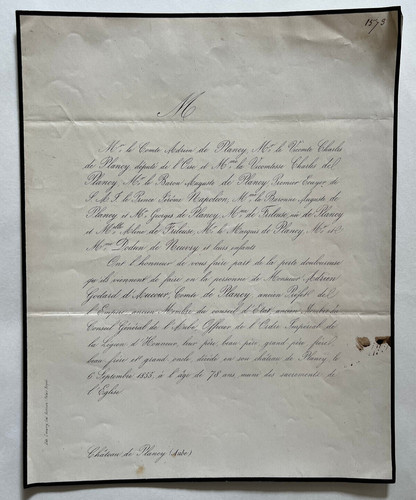 1873
M
M.r le Comte Adrien de Plancy, M.r le Vicomte Charles
de Plancy, député de l'Oise et M.me la Vicomtesse Charles de
Plancy, M.r le Baron Auguste de Plancy, Premier Ecuyer de
S. A. I. le Prince Jérôme Napoléon, M.me la Baronne Auguste de
Plancy et M.r Georges de Plancy, M.me de née de Plancy
et M.elle de M.r le Marquis de Plancy, M.r et
M.me Dodun de et leurs enfants
Ont l'honneur de vous faire part de la perte douloureuse
qu'ils viennent de faire en la personne de Monsieur Adrien
Godard d'Aucour, Comte de Plancy, ancien Préfet de
l'Empire, ancien Membre du conseil d'Etat, ancien
Conseil Général de l'Aube, Officier de l'Ordre Impérial de
la Légion d'Honneur, leur père, beau père, grand père, frère,
beau frère et grand oncle, décédé en son château de Plancy le
6 Septembre 1855, à l'âge de 78 ans, muni des sacrements de
l'Eglise
Château de Plancy (Aube)